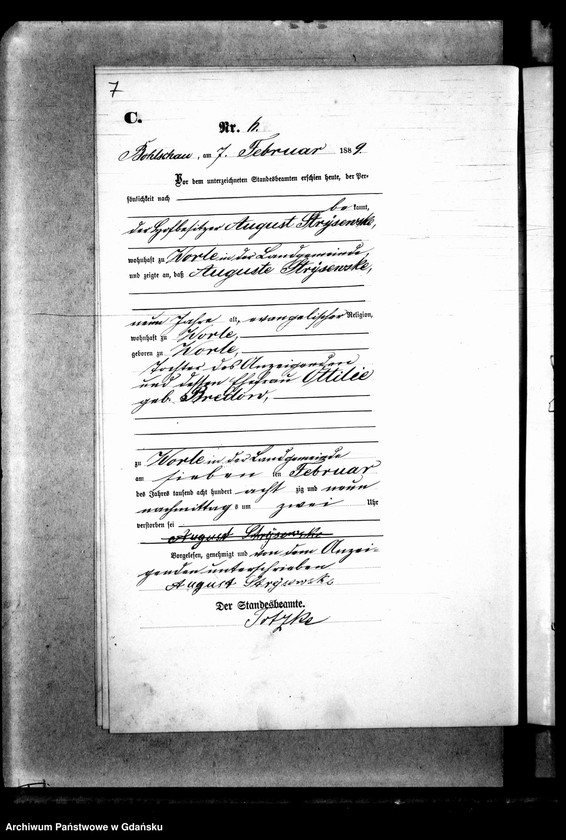 7
C.
Nr. 6.
Bohlschau, am 7. Februar 1889.
Vor dem unterzeichneten Standesbeamten erschien heute, der Per-
sönlichkeit nach
be kannt,
der Hofbesitzer August Strysewske,
wohnhaft zu Worle in der Landgemeinde,
und zeigte an, daß Auguste Strysewske,
neun Jahre alt, evangelischer Religion,
wohnhaft zu Worle,
geboren zu Worle,
Tochter des Anzeigenden
und dessen Ehefrau Ottilie
geb. Bredow,
zu Worle in der Landgemeinde
am sieben ten Februar
des Jahres tausend acht hundert acht zig und neun
nachmittag s um zwei Uhr
verstorben sei
August Strysowske
Vorgelesen, genehmigt und von dem Anzei-
genden unterschrieben
August Strysowske
Der Standesbeamte.
Archiwum Państwowe w Gdańsku